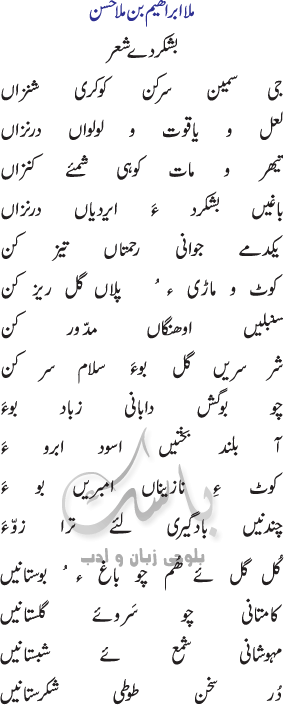 ملا ابراھیم بن ملا حسن
بشکردے شعر
جی سمین سرکن کوکری شنزاں
لعل و یاقوت و لولواں درنزاں
تیھر و مات کوہی شمئے کنزاں
باغیں بشکرد ءَ ایردیاں درنزاں
یکدمے جوانی رحمتاں تیز کن
کوٹ و ماڑی ءُ پلاں گل ریز کن
سنبلیں اوھنگاں مدّور کن
شر سریں گل بوءَ سلام سر کن
چو بوگش دابانی زباد بوءَ
آ بلند بختیں اسود ابرو ءَ
کوٹ ءِ نازیناں امبریں بو ءَ
چندنیں بادگیری لئے ترا زوّءَ
گُل گل ئے ھم چو باغ ءُ بوستانیں
کامتانی چو سَروئے گلستانیں
مہوشانی شمع ئے شبستانیں
دُر سخن طوطی شکرستانیں
باسک
بلوچی زبان و ادب